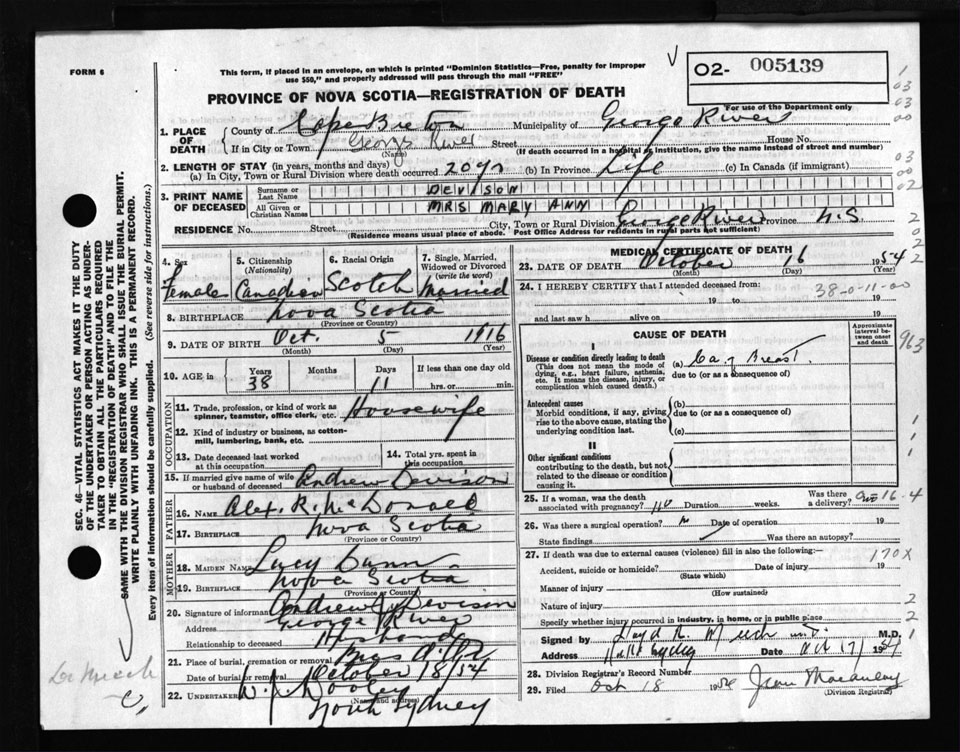 FORM 6
This form, if placed in an envelope, on which is printed "Dominion Statistics—Free, penalty for improper
use $50," and properly addressed will pass through the mail "FREE"
O2- 005139
For use of the Department only
PROVINCE OF NOVA SCOTIA—REGISTRATION OF DEATH
1. PLACE OF DEATH
County of Cape Breton Municipality of George River
If in City or Town Georges River Street House No.
(Name) (If death occurred in a hospital or institution, give the name instead of street and number)
2. LENGTH OF STAY (in years, months and days)
(a) In City, Town or Rural Division where death occurred 20 yr (b) In Province Life (c) In Canada (if immigrant)
3. PRINT NAME OF DECEASED
Surname or Last Name DEVISON
All Given or Christian Names MRS MARY ANN
RESIDENCE No. Street City, Town or Rural Division George River Province N.S.
(Residence means usual place of abode. Post Office Address for residents in rural parts not sufficient)
4. Sex Female
5. Citizenship (Nationality) Canadian
6. Racial Origin Scotch
7. Single, Married, Widowed or Divorced (write the word) Married
8. BIRTHPLACE Nova Scotia
(Province or Country)
9. DATE OF BIRTH Oct. 5 1916
(Month) (Day) (Year)
10. AGE in Years 38 Months Days 11 If less than one day
hrs. or min.
OCCUPATION
11. Trade, profession, or kind of work as spinner, teamster, office clerk, etc. Housewife
12. Kind of industry or business, as cotton-mill, lumbering, bank, etc.
13. Date deceased last worked at this occupation
14. Total yrs. spent in this occupation
15. If married give name of wife or husband of deceased Andrew Devison
FATHER
16. Name Alex. R. McDonald
17. Birthplace Nova Scotia
(Province or Country)
MOTHER
18. MAIDEN NAME Lucy Dunn
19. Birthplace Nova Scotia
(Province or Country)
20. Signature of informant Andrew J Devison
Address George River
Relationship to deceased Husband
21. Place of burial, cremation or removal
Date of burial or removal October 18/54
22. UNDERTAKER W. J. Dooley
(Name and Address)
North Sydney
MEDICAL CERTIFICATE OF DEATH
23. DATE OF DEATH October 16 1954
(Month) (Day) (Year)
24. I HEREBY CERTIFY that I attended deceased from:
38-0-11-00
19 to 19
and last saw h alive on 19
CAUSE OF DEATH
Approximate interval between onset and death
963
I
Disease or condition directly leading to death
(This does not mean the mode of dying, e.g., heart failure, asthenia, etc. It means the disease, injury, or complication which caused death.)
(a) Ca. of Breast.
due to (or as a consequence of)
Antecedent causes
Morbid conditions, if any, giving rise to the above cause, stating the underlying condition last.
(b)
due to (or as a consequence of)
(c)
II
Other significant conditions
contributing to the death, but not related to the disease or condition causing it
25. If a woman, was the death associated with pregnancy? No Duration weeks. Was there a delivery?
16-4
26. Was there a surgical operation? Date of operation 19
State findings Was there an autopsy?
27. If death was due to external causes (violence) fill in also the following:—
170X
Accident, suicide or homicide? Date of injury 19
(State which)
Manner of injury
(How sustained)
Nature of injury
Specify whether injury occurred in industry, in home, or in public place
Signed by Lloyd R. M M.D.
Address North Sydney Date Oct 17 1954
28. Division Registrar's Record Number
29. Filed Oct 18 1954 Jean Macauley
(Division Registrar)
SEC. 46—VITAL STATISTICS ACT MAKES IT THE DUTY
OF THE UNDERTAKER OR PERSON ACTING AS UNDER-
TAKER TO OBTAIN ALL THE PARTICULARS REQUIRED
IN THE "REGISTRATION OF DEATH" AND TO FILE THE
SAME WITH THE DIVISION REGISTRAR WHO SHALL ISSUE THE BURIAL PERMIT.
WRITE PLAINLY WITH UNFADING INK. THIS IS A PERMANENT RECORD.
Every items of information should be carefully supplied. (See reverse side for instructions.)